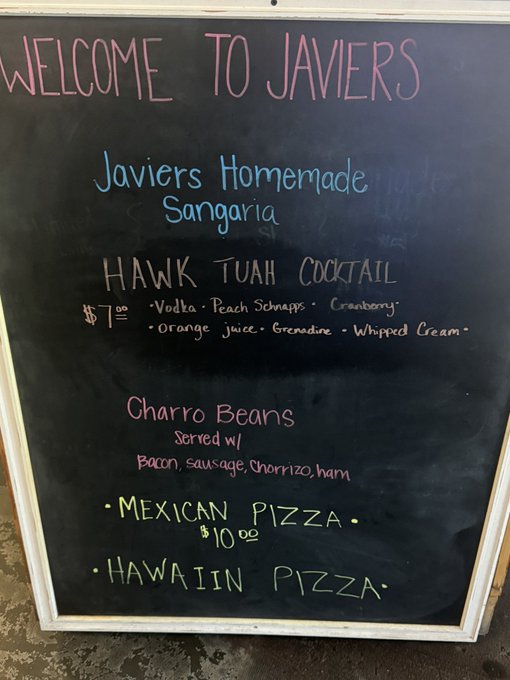 WELCOME TO JAVIERS
Javiers Homemade
Sangaria
HAWK TUAH COCKTAIL
$7.00 • Vodka • Peach Schnapps • Cranberry •
• orange juice • Grenadine • Whipped Cream •
Charro Beans
Served w/
Bacon, sausage, Chorrizo, ham
• MEXICAN PIZZA •
$10.00
• HAWAIIN PIZZA •